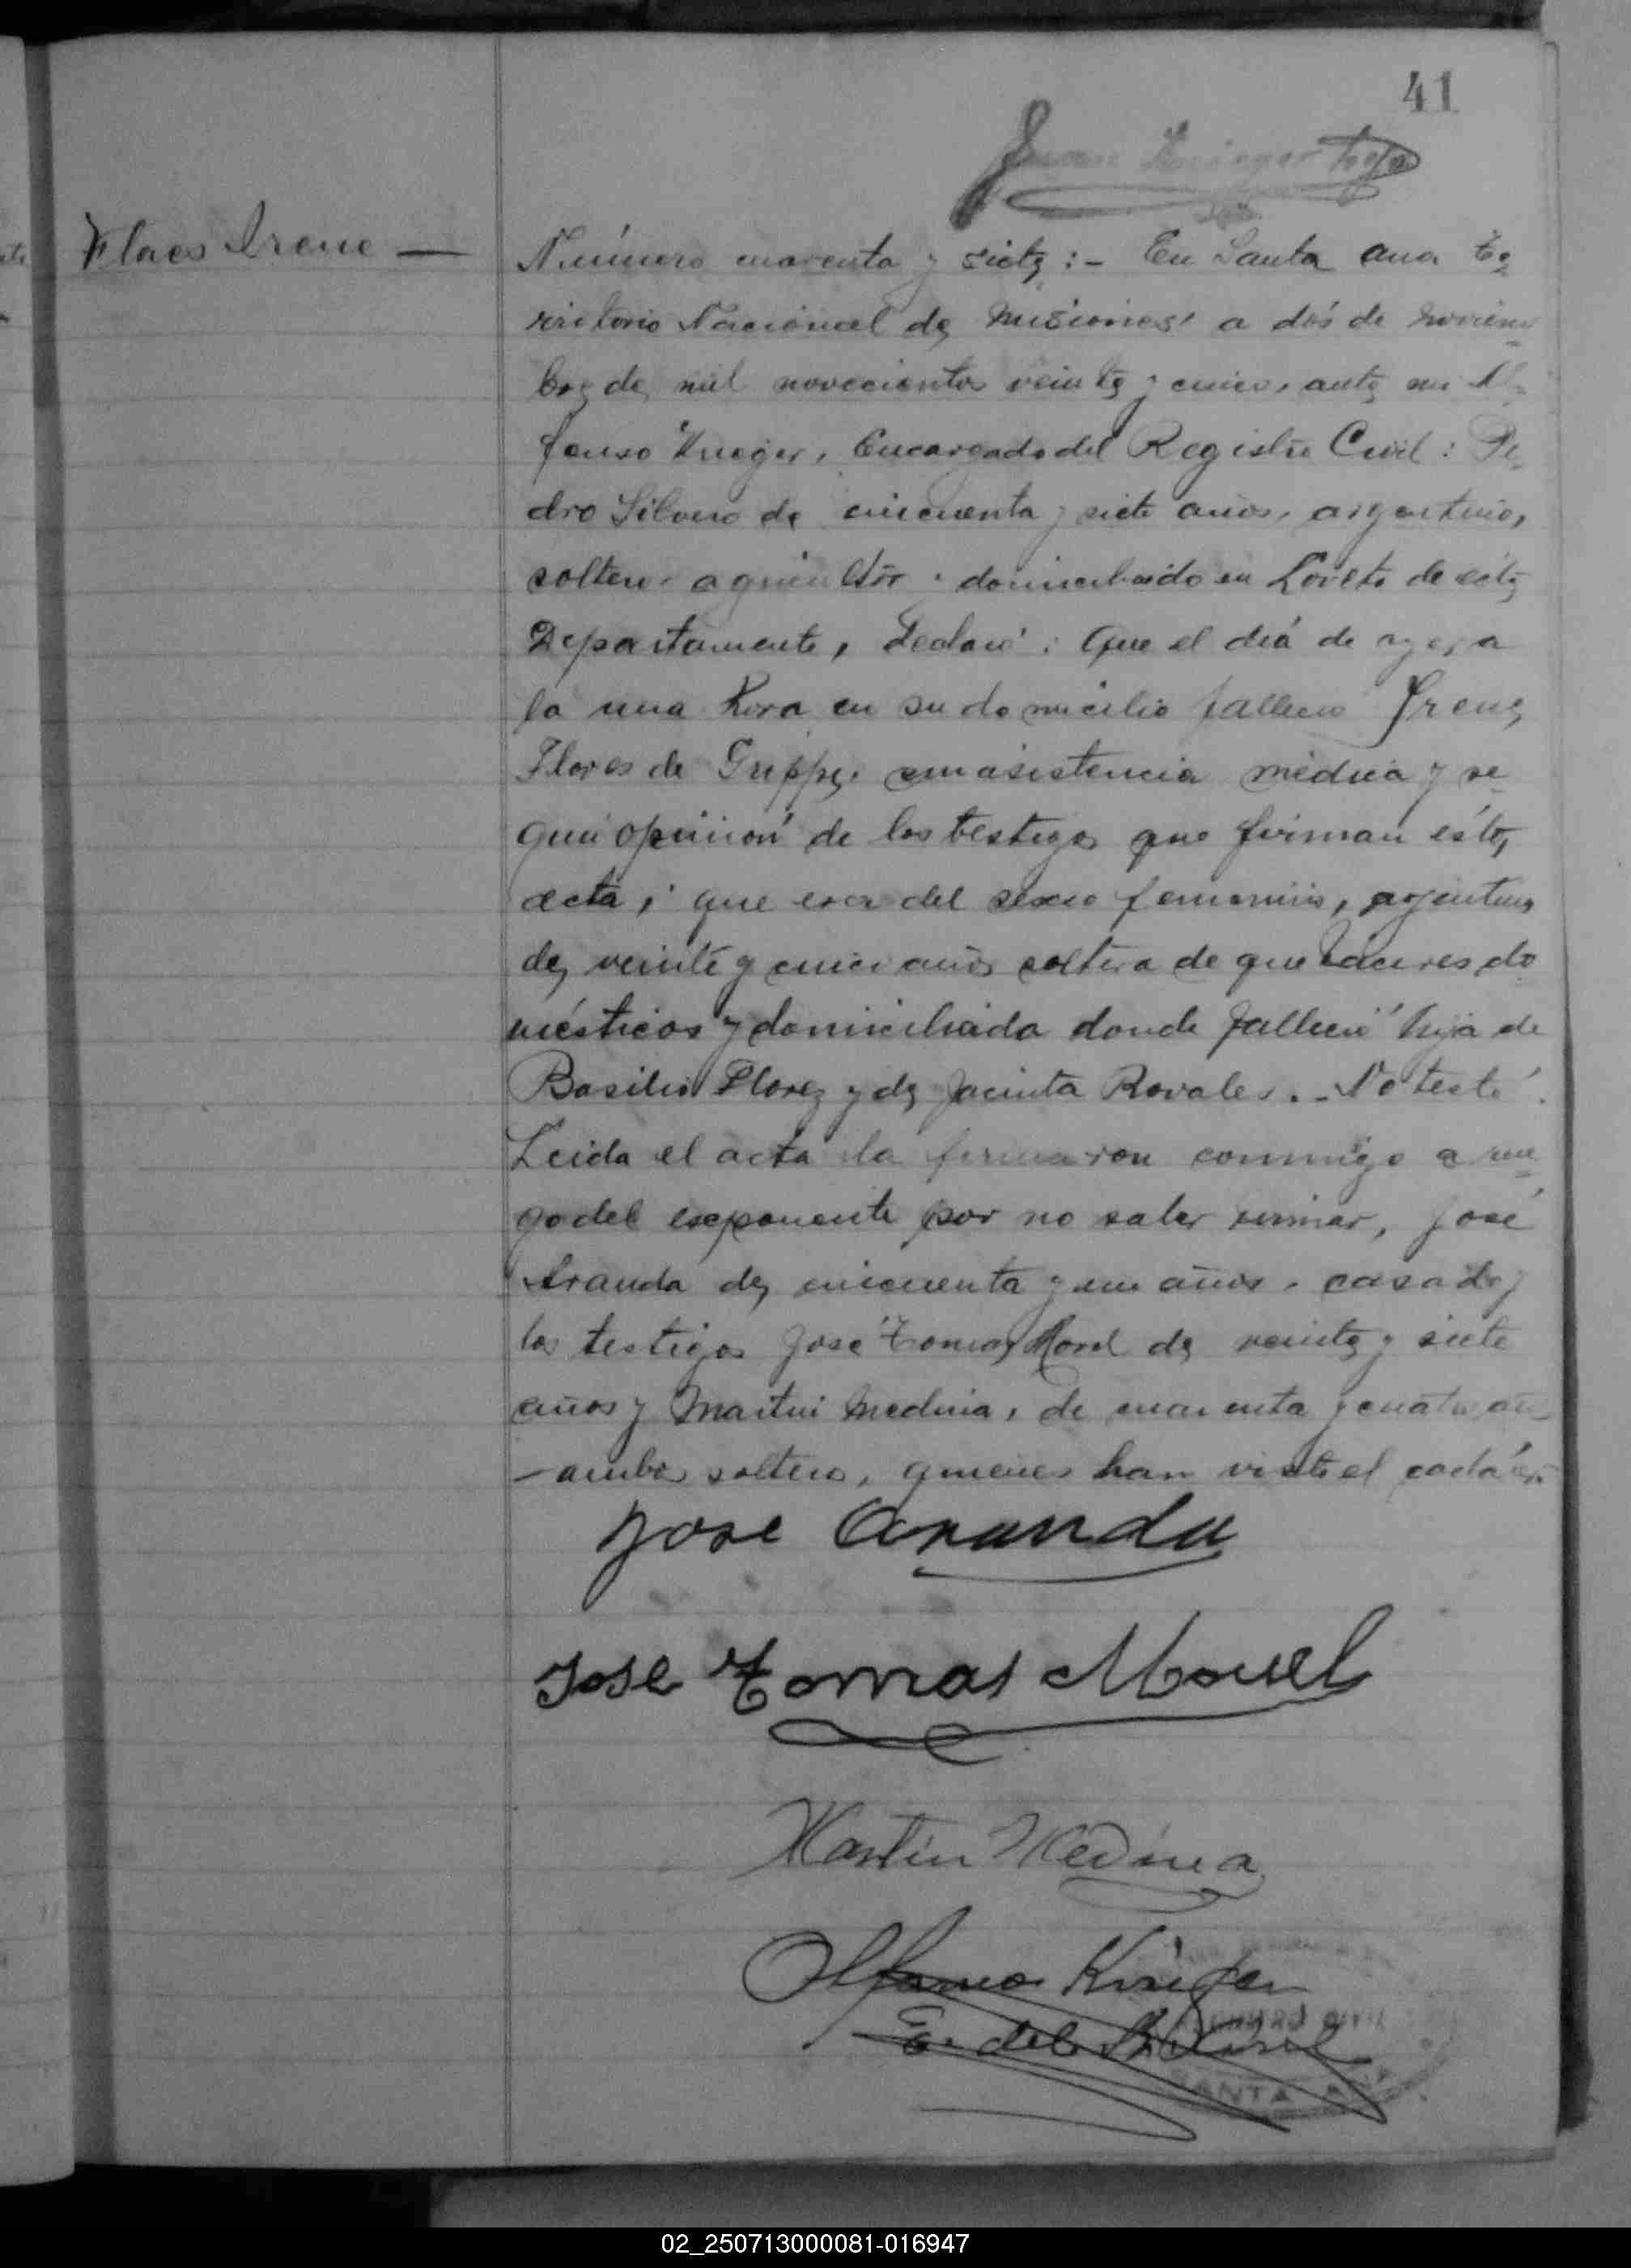 41
Flores Irene —
Número cuarenta y siete :- En Santa Ana Te-
rritorio Nacional de Misiones, a dós de noviem-
bre de mil novecientos veinte y cinco, ante mi Al-
fonso Krieger, Encargado del Registro Civil : Pe-
dro Silvero de cincuenta y siete años, argentino,
soltero, agricultór, domiciliado en Loreto de este
Departamento, declaró : Que el diá de ayer, a
la una hora en su domicilio falleció Irene
Flores de Grippe, sin asistencia médica y se-
gún opinión de los testigos que firman ésta,
acta, que era del sexo femenino, argentina
de, veinte y cinco años soltera de quehaceres do
mésticos y domiciliada donde falleció hija de
Basilio Florez y de Jacinta Rovales. - No testó.
Leida el acta la firmaron conmigo a rue-
go del exponente por no saber firmar, José
Aranda de, cincuenta y un años, casado y
los testigos José Tomas Morel de veinte y siete
años y Martin Medina, de cuarenta y cuatro añ-
- ambos soltero, quienes han visto el cadáver.
Jose Aranda
Jose Tomas Morel
Martin Medina
Alfonso Krieger
E. del R. Civil
REGISTRO CIVIL
SANTA ANA
02_250713000081-016947